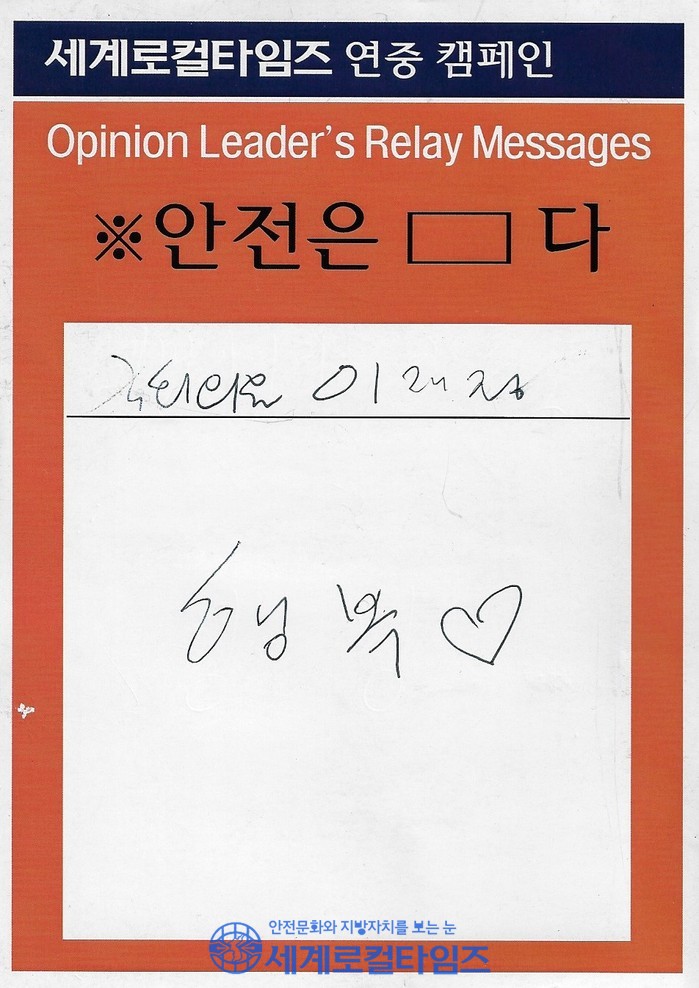 세계로컬타임즈 연중 캠페인
Opinion Leader's Relay Messages
※안전은 ▭ 다
국회의원 이재정
행복♡
안전문화와 지방자치를 보는 눈
세계로컬타임즈